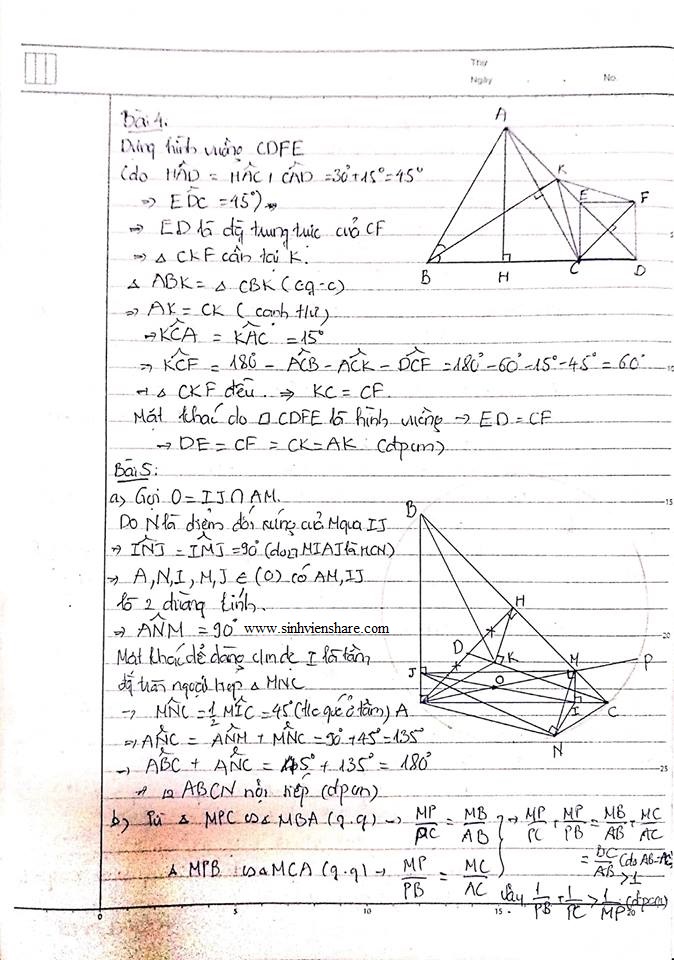 Thứ
Ngày . . No.
Bài 4.
Dựng hình vuông CDFE
(do HÂD = HÂC + CÂD = 30° + 15° = 45°
⇒ EDC = 45°)
⇒ ED là đg trung trực của CF
⇒ △ CKF cân tại K.
△ ABK = △ CBK (c.g-c)
⇒ AK = CK (cạnh t/ứ)
⇒ KCA = KAC = 15°
⇒ KCF = 180° - ACB - ACK - DCF = 180° - 60° - 15° - 45° = 60°
⇒ △ CKF đều. ⇒ KC = CF.
Mặt khác do □ CDFE là hình vuông → ED = CF
⇒ DE = CF = CK = AK (đpcm)
A
K
E
F
B
H
C
D
Bài 5:
a) Gọi O = IJ ∩ AM.
Do N là điểm đối xứng của M qua IJ
⇒ INJ = IMJ = 90° (do □ MIAJ là HCN)
⇒ A, N, I, M, J ∈ (O) có AM, IJ
là 2 đường kính.
⇒ ANM = 90°
www.sinhvienshare.com
Mặt khác dễ dàng c/m đc I là tâm
đg tròn ngoại tiếp △ MNC
→ MNC = 1/2 MIC = 45° (t/c góc ở tâm)
⇒ ANC = ANM + MNC = 90° + 45° = 135°
→ ABC + ANC = 45° + 135° = 180°
⇒ □ ABCN nội tiếp (đpcm)
B
H
D
K
J
M
P
O
A
I
C
N
b) Từ △ MPC ∽ △ MBA (g.g) → MP/PC = MB/AB } → MP/PC + MP/PB = MB/AB + MC/AC
△ MPB ∽ △ MCA (g.g) → MP/PB = MC/AC
= BC/AB (do AB = AC) > 1
Vậy 1/PB + 1/PC > 1/MP (đpcm)
0 5 10 15 20
10
15
20
25